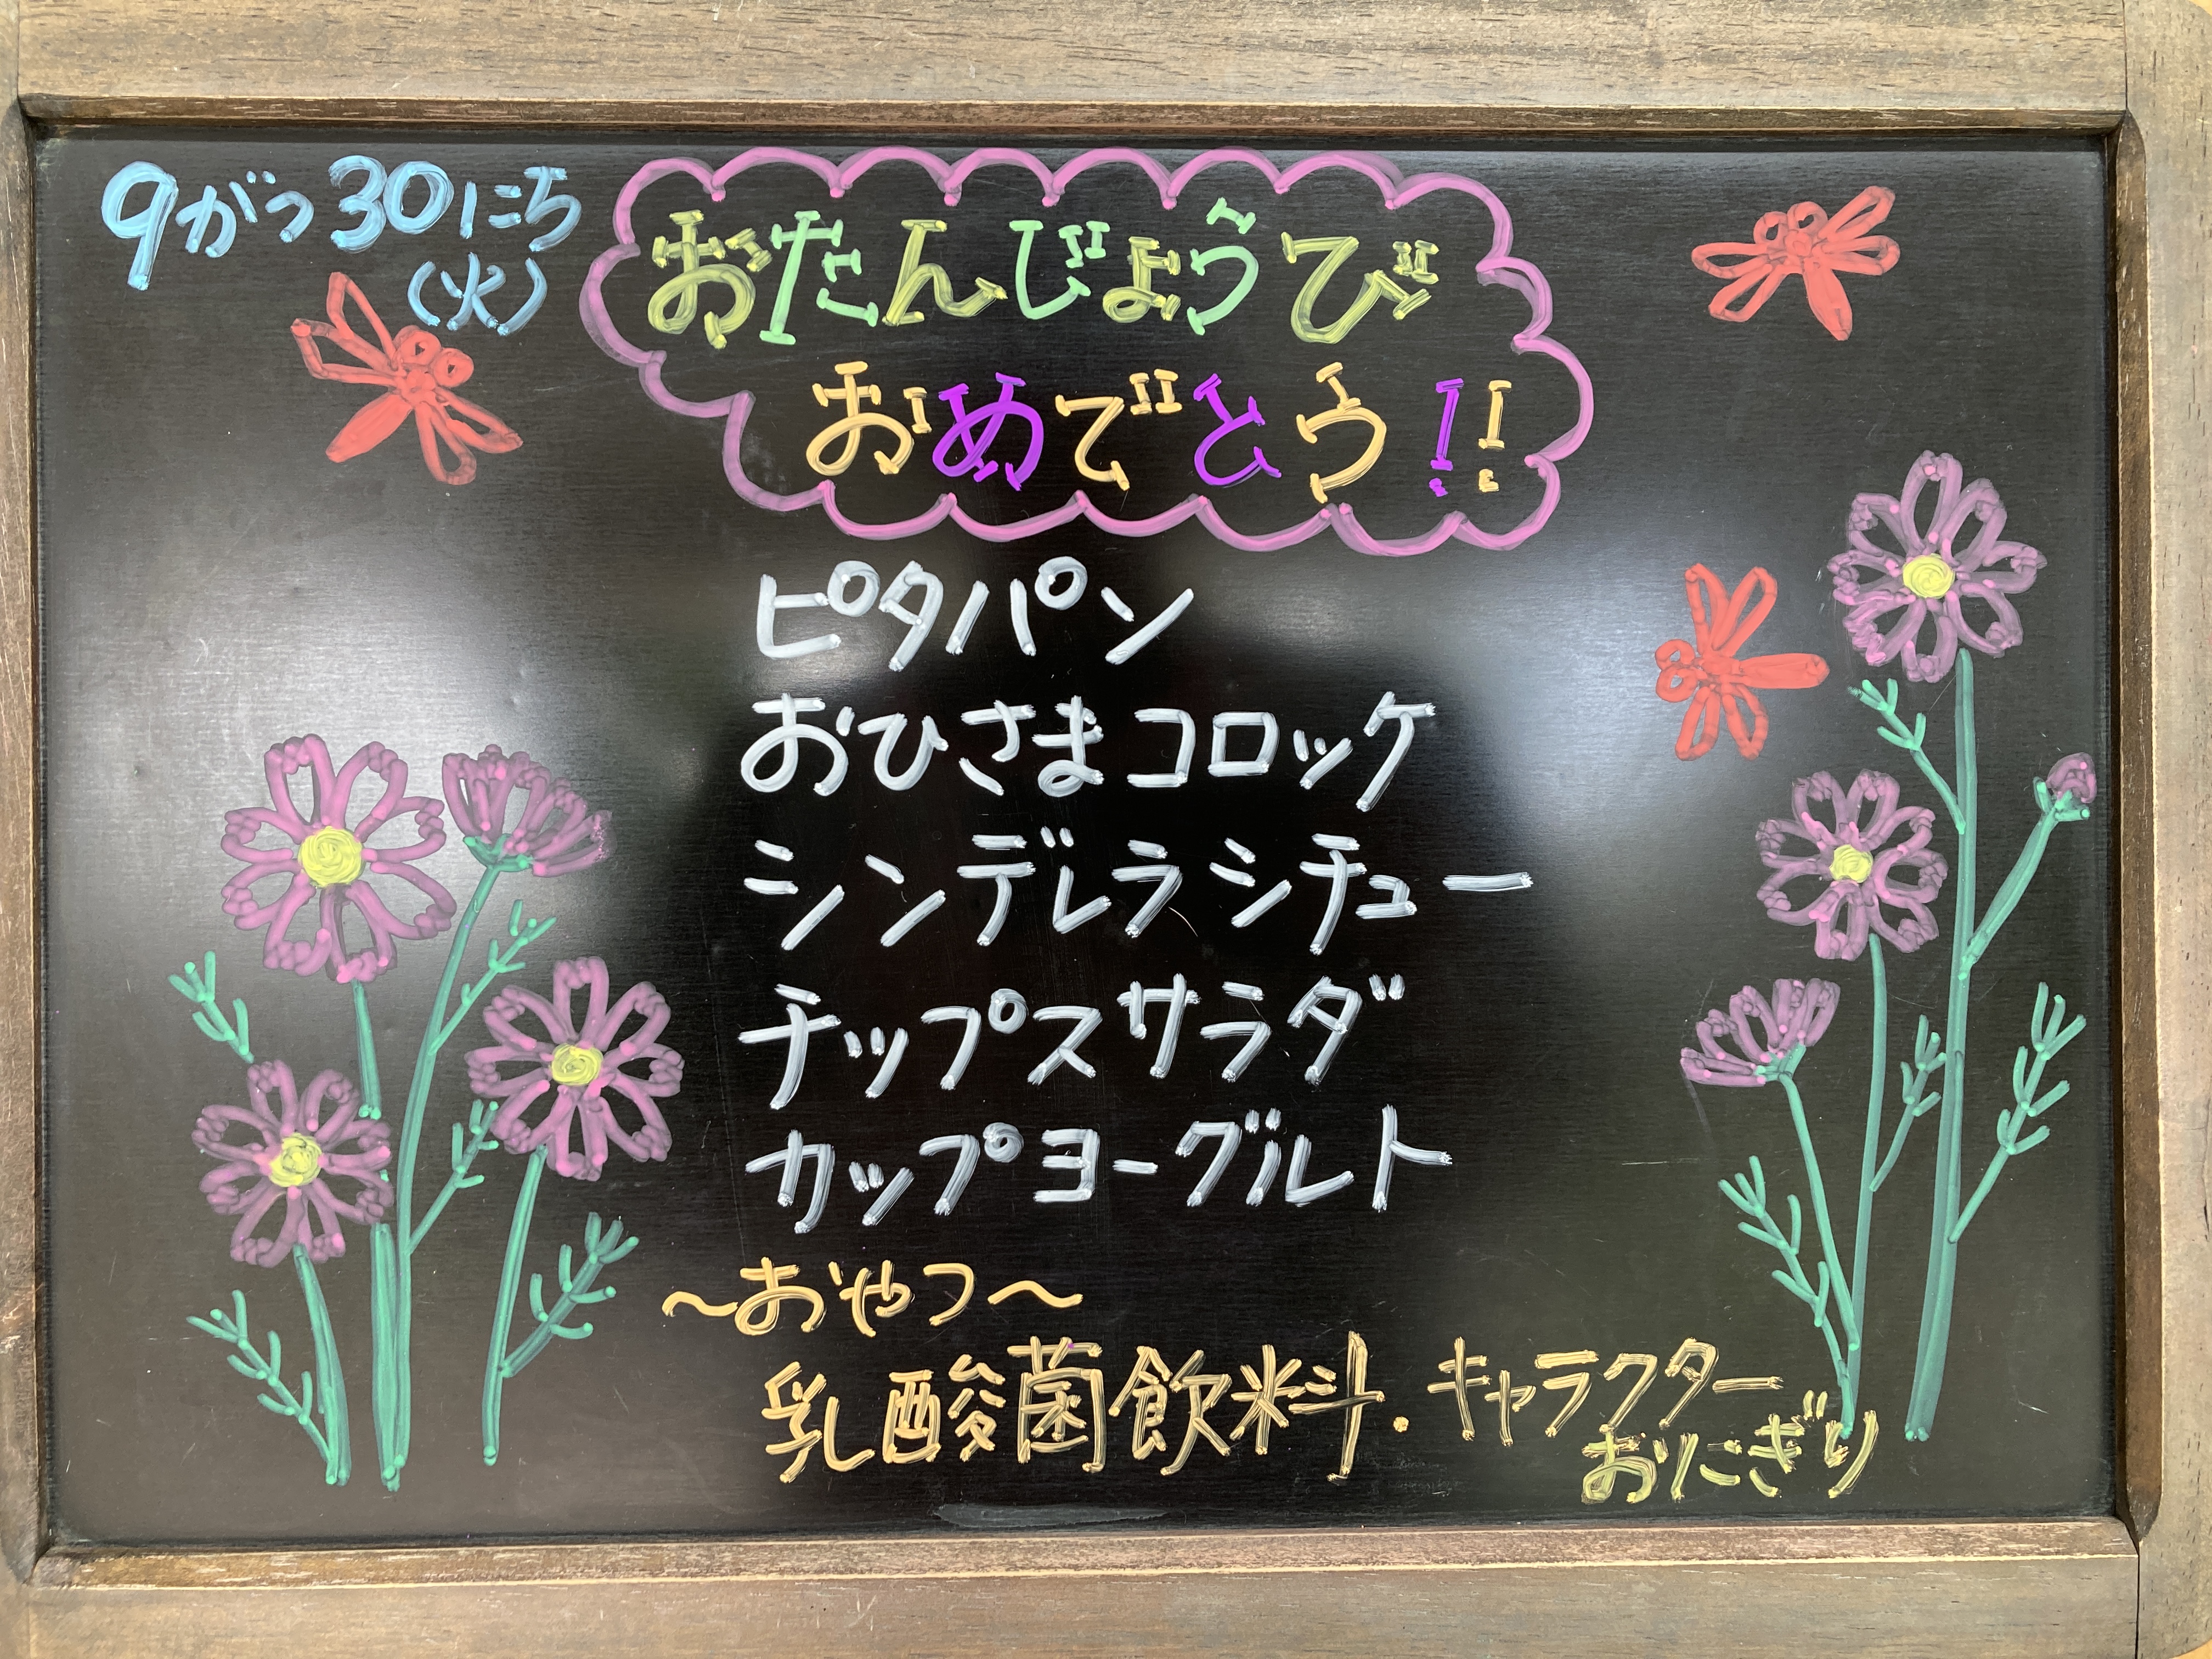 9がつ30にち
(火)
おたんじょうび
おめでとう!!
ピタパン
おひさまコロッケ
シンデレラシチュー
チップスサラダ
カップヨーグルト
~おやつ~
乳酸菌飲料・キャラクター
おにぎり